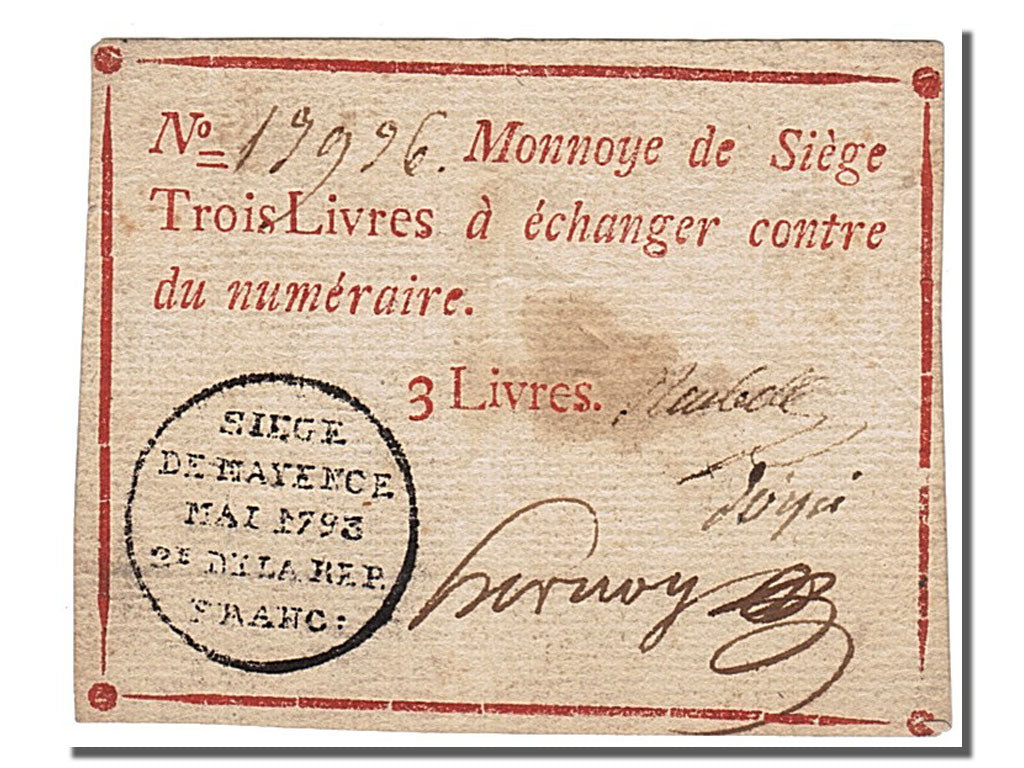 No 17996. Monnoye de Siège
Trois Livres à échanger contre
du numéraire.
3 Livres.
SIEGE
DE MAYENCE
MAI 1793
2E DE LA REP.
FRANC: